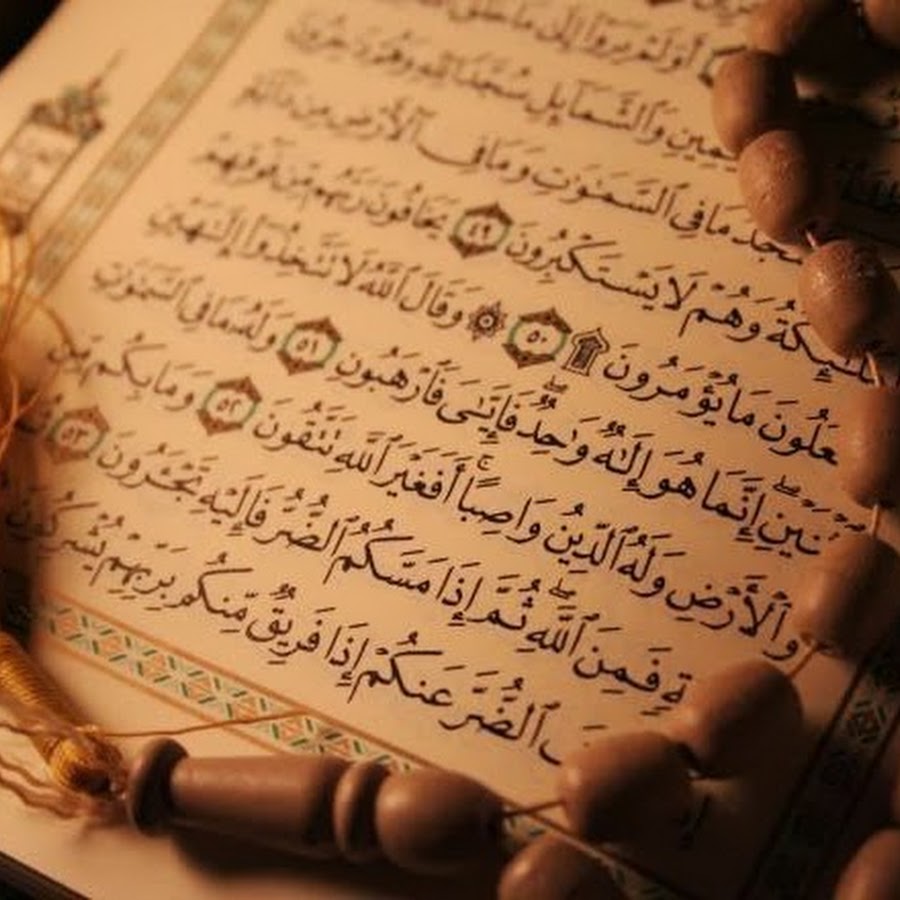 أَوَلَمْ يَرَوْا۟ إِلَىٰ مَا خَلَقَ
ـمِينِ وَٱلشَّمَآئِلِ سُجَّدًا لِّلَّهِ وَهُمْ دَٰخِرُونَ
ـجُدُ مَا فِى ٱلسَّمَٰوَٰتِ وَمَا فِى ٱلْأَرْضِ مِن دَآبَّةٍ
ـلَٰٓئِكَةُ وَهُمْ لَا يَسْتَكْبِرُونَ ٤٩ يَخَافُونَ رَبَّهُم مِّن فَوْقِهِمْ
ـعَلُونَ مَا يُؤْمَرُونَ ۩ ٥٠ ۞ وَقَالَ ٱللَّهُ لَا تَتَّخِذُوٓا۟ إِلَٰهَيْنِ
ـنَيْنِ إِنَّمَا هُوَ إِلَٰهٌ وَٰحِدٌ فَإِيَّٰىَ فَٱرْهَبُونِ ٥١ وَلَهُۥ مَا فِى ٱلسَّمَٰوَٰتِ
وَٱلْأَرْضِ وَلَهُ ٱلدِّينُ وَاصِبًا أَفَغَيْرَ ٱللَّهِ تَتَّقُونَ ٥٢ وَمَا بِكُم مِّن
ـةٍ فَمِنَ ٱللَّهِ ثُمَّ إِذَا مَسَّكُمُ ٱلضُّرُّ فَإِلَيْهِ تَجْـَٔرُونَ ٥٣
ٱلضُّرَّ عَنكُمْ إِذَا فَرِيقٌ مِّنكُم بِرَبِّهِمْ يُشْرِكُونَ